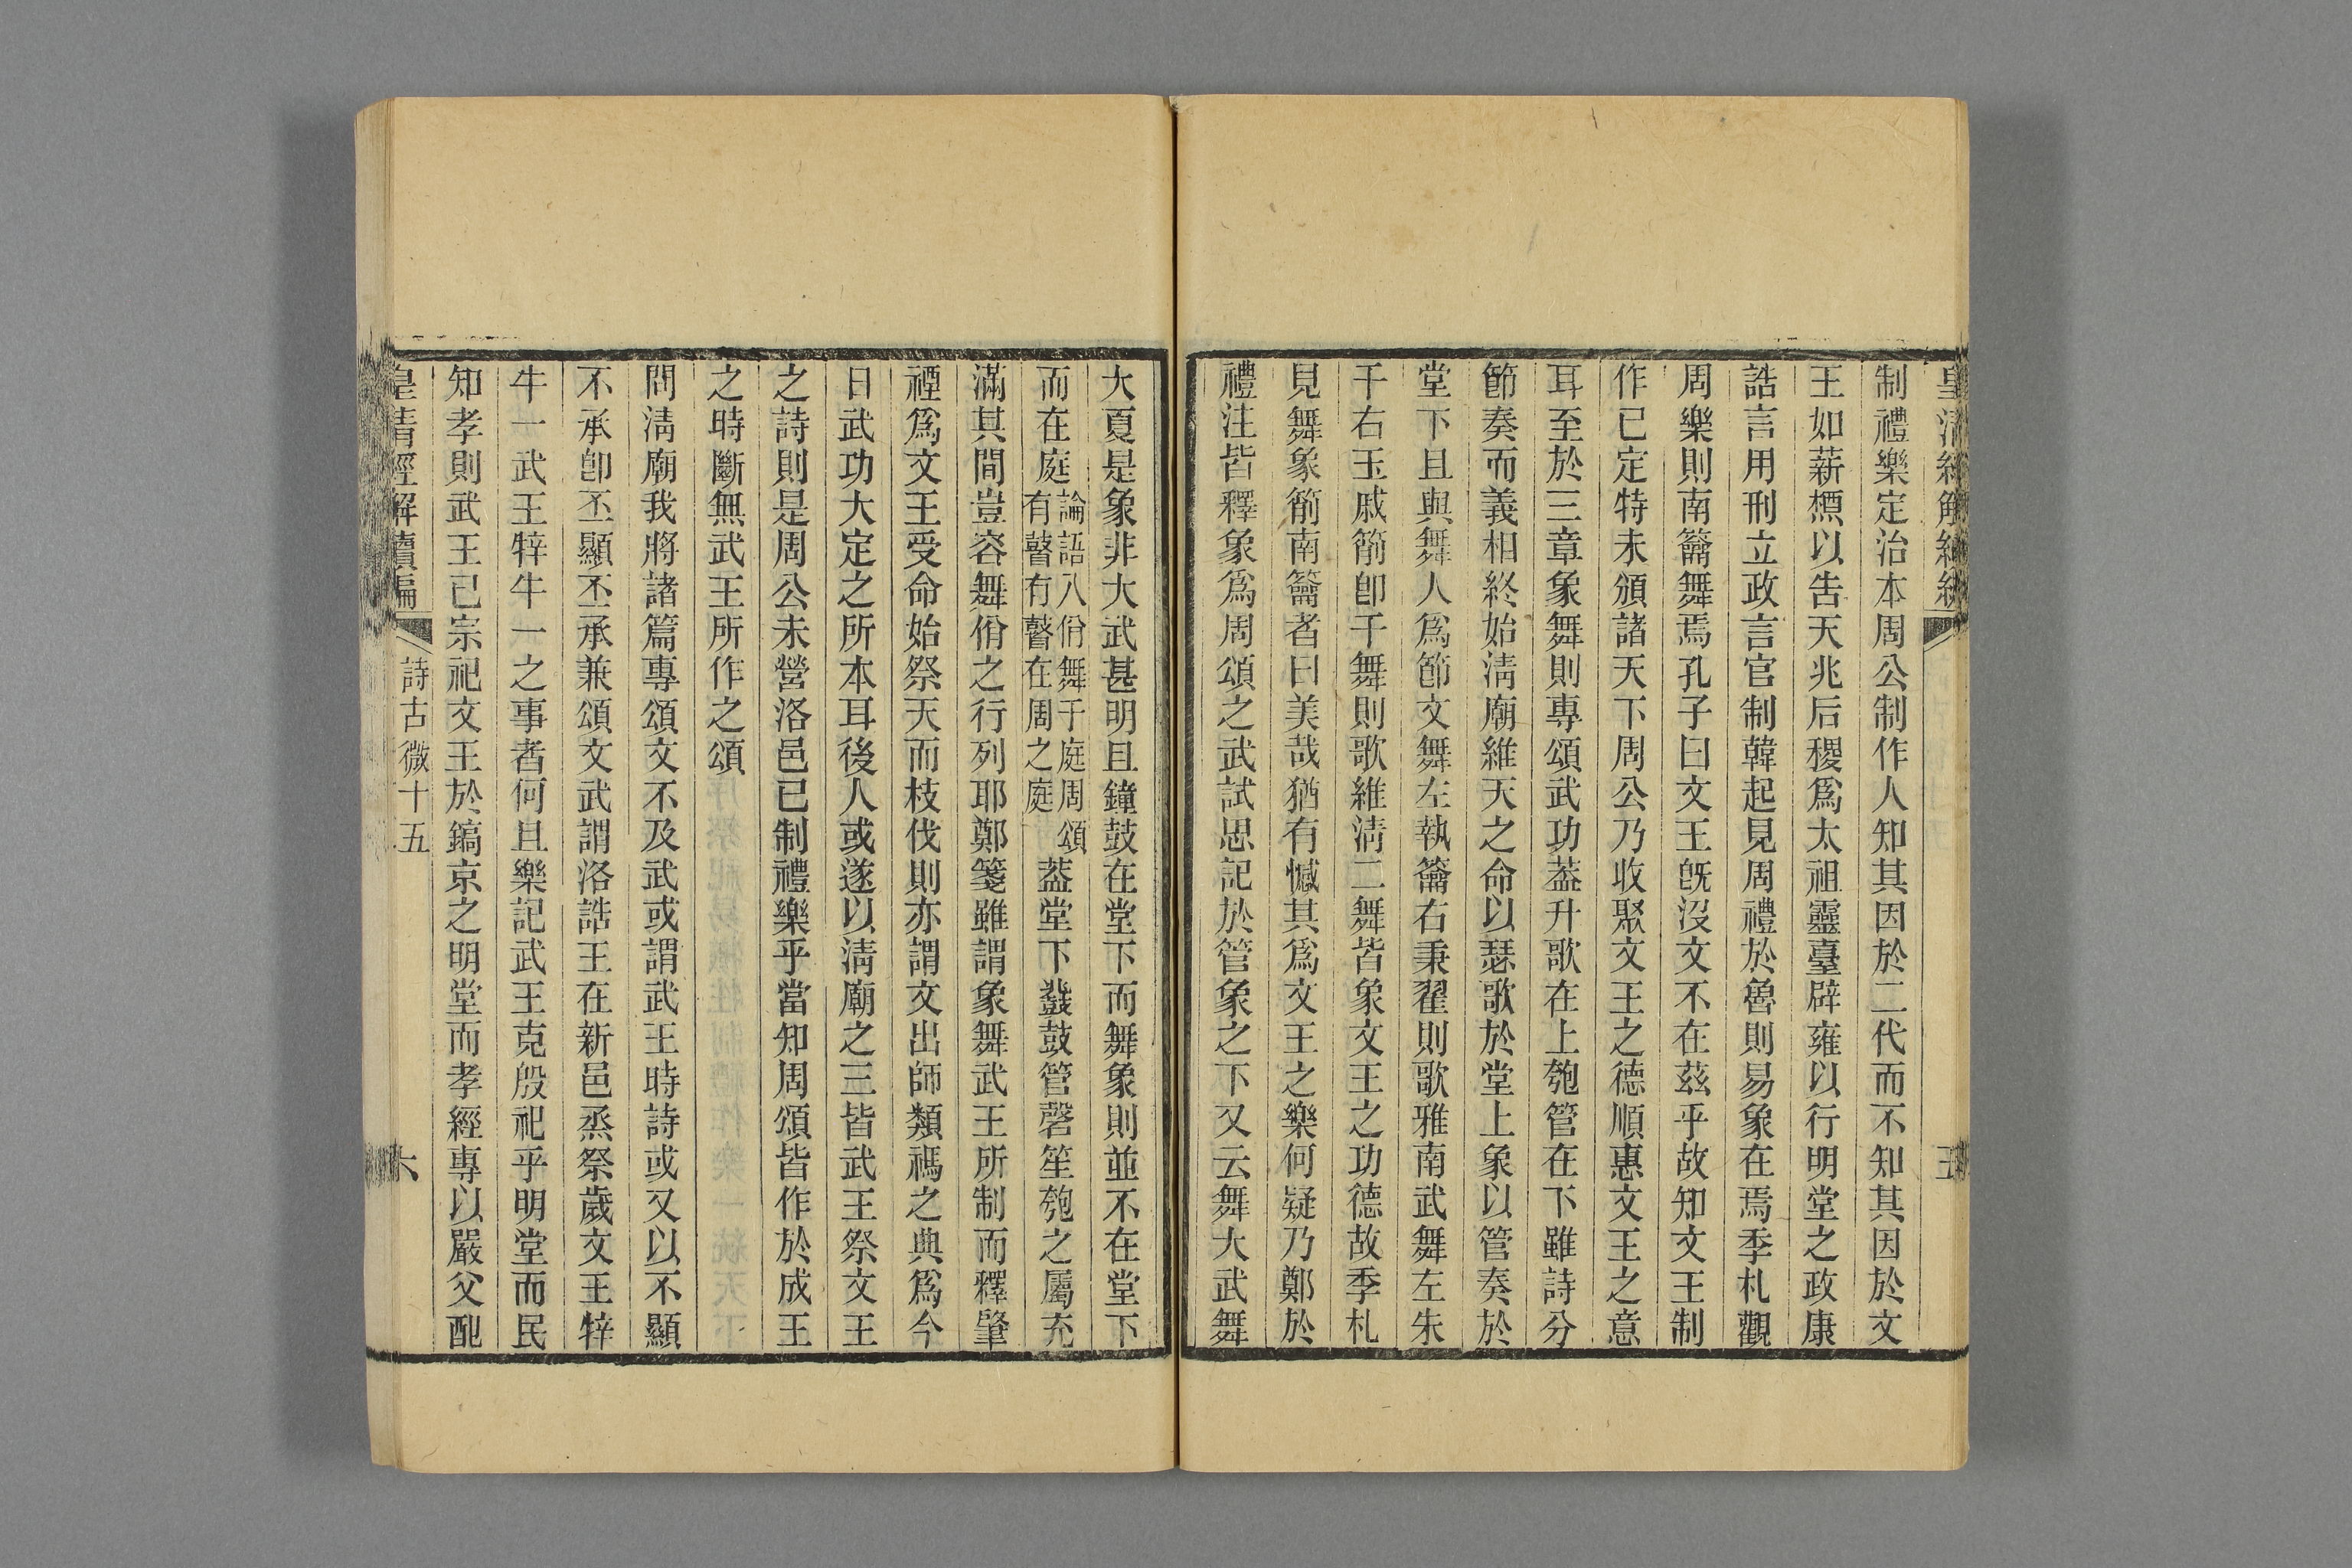 制禮樂定治本周公制作人知其因於二代而不知其因於文
王如薪槱以告天兆后稷爲太祖靈臺辟雍以行明堂之政康
誥言用刑立政言官制韓起見周禮於魯則易象在焉季札觀
周樂則南籥舞焉孔子曰文王旣沒文不在茲乎故知文王制
作已定特未頒諸天下周公乃收聚文王之德順惠文王之意
耳至於三章象舞則專頌武功葢升歌在上匏管在下雖詩分
節奏而義相終始淸廟維天之命以瑟歌於堂上象以管奏於
堂下且與舞人爲節文舞左執籥右秉翟則歌雅南武舞左朱
干右玉戚箾卽干舞則歌維淸二舞皆象文王之功德故季札
見舞象箾南籥者曰美哉猶有憾其爲文王之樂何疑乃鄭於
禮注皆釋象爲周頌之武試思記於管象之下又云舞大武舞
大夏是象非大武甚明且鐘鼓在堂下而舞象則並不在堂下
而在庭論語八佾舞于庭周頌有瞽有瞽在周之庭葢堂下鼗鼓管磬笙匏之屬充
滿其間豈容舞佾之行列耶鄭箋雖謂象舞武王所制而釋肇
禋爲文王受命始祭天而枝伐則亦謂文出師類禡之典爲今
日武功大定之所本耳後人或遂以淸廟之三皆武王祭文王
之詩則是周公未營洛邑已制禮樂乎當知周頌皆作於成王
之時斷無武王所作之頌
問淸廟我將諸篇專頌文不及武或謂武王時詩或又以不顯
不承卽丕顯丕承兼頌文武謂洛誥王在新邑烝祭歲文王騂
牛一武王騂牛一之事者何且樂記武王克殷祀乎明堂而民
知孝則武王已宗祀文王於鎬京之明堂而孝經專以嚴父配
皇淸經解續編
詩古微十五
六